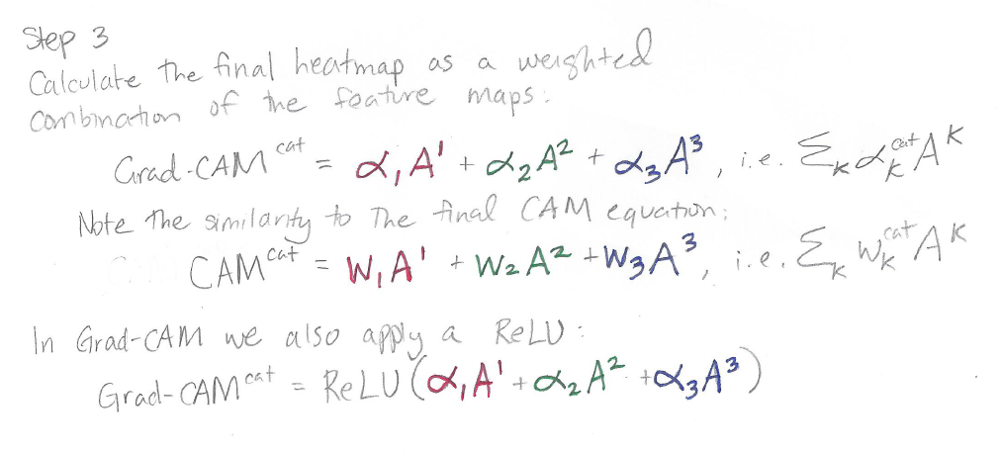 Step 3
Calculate the final heatmap as a weighted
combination of the feature maps:
Grad-CAM^cat = α₁A¹ + α₂A² + α₃A³, i.e. Σₖ αₖ^cat A^K
Note the similarity to the final CAM equation:
CAM^cat = W₁A¹ + W₂A² + W₃A³, i.e. Σₖ wₖ^cat A^K
In Grad-CAM we also apply a ReLU:
Grad-CAM^cat = ReLU(α₁A¹ + α₂A² + α₃A³)